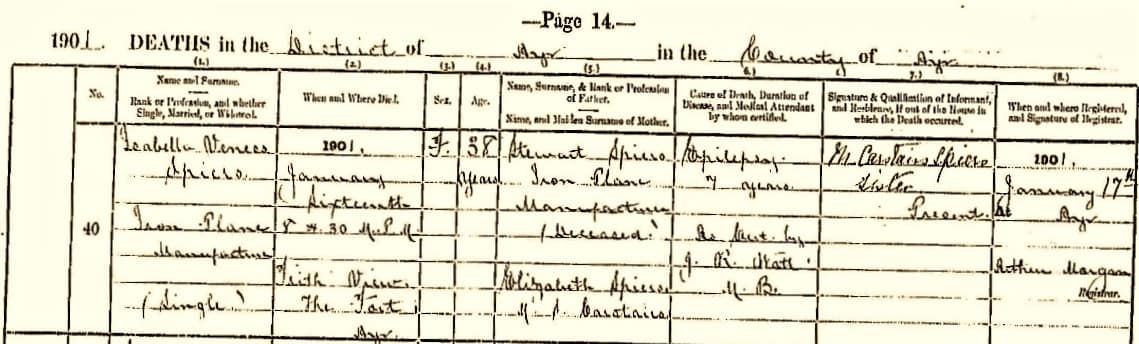 —Page 14.—
1901. DEATHS in the District of Ayr in the County of Ayr
(1.) (2.) (3.) (4.) (5.) 6.) 7.) (8.)
No.
Name and Surname.
Rank or Profession, and whether
Single, Married, or Widowed.
When and Where Died.
Sex.
Age.
Name, Surname, & Rank or Profession
of Father.
Name, and Maiden Surname of Mother.
Cause of Death, Duration of
Disease, and Medical Attendant
by whom certified.
Signature & Qualification of Informant,
and Residence, if out of the House in
which the Death occurred.
When and where Registered,
and Signature of Registrar.
40
Isabella
Spiers
Iron Plane
Manufacturer
(Single)
1901.
January
Sixteenth
8 h. 30 M. P.M.
Firth View.
The Fort
Ayr.
F.
38
years
Stewart Spiers
Iron Plane
Manufacturer
(Deceased)
Elizabeth Spiers
M. S. Carstairs
Epilepsy.
7 years
As Cert. by
J. R. Watt
M. B.
M. Carstairs Spiers
Sister
Present.
1901.
January 17th
At Ayr
Arthur Morgan
Registrar.